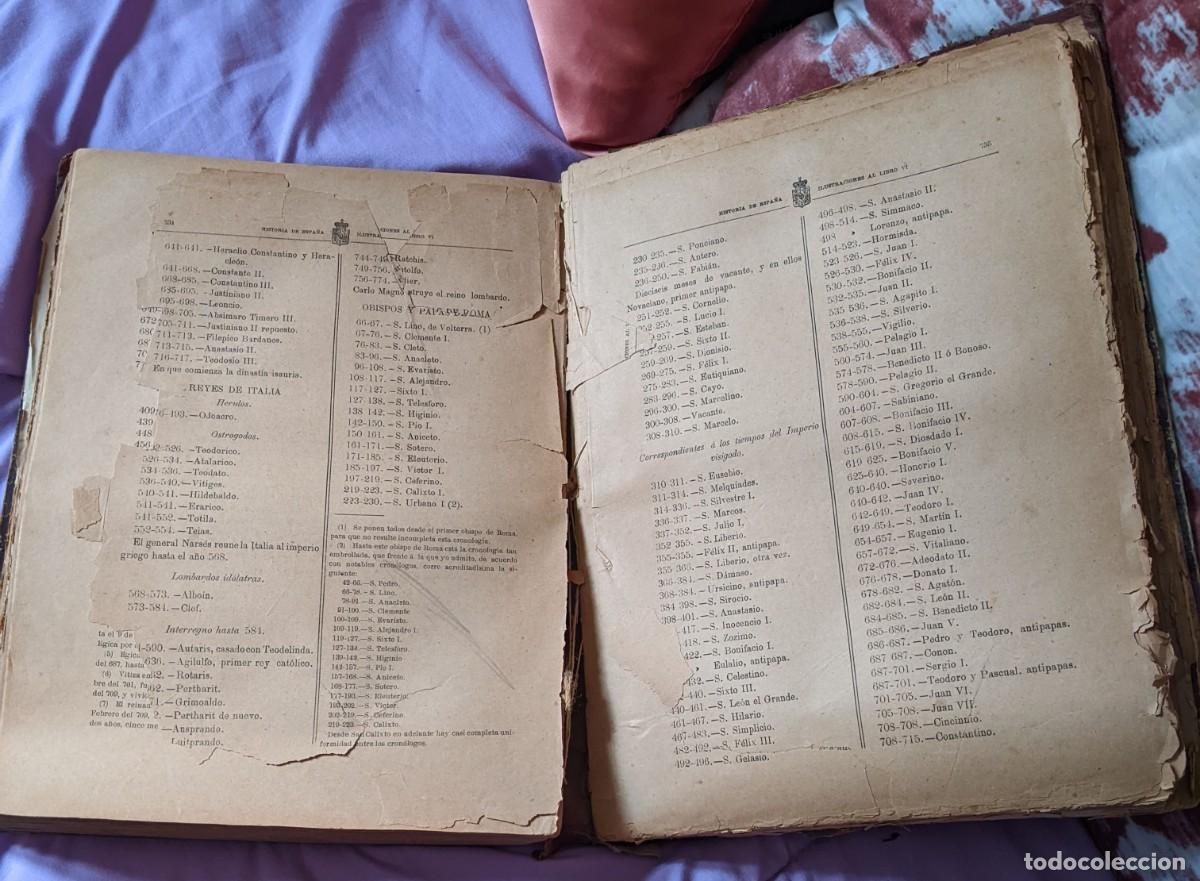 334
HISTORIA DE ESPAÑA
641-641.—Heraclio Constantino y Hera-
cleón.
641-668.—Constante II.
668-685.—Constantino III.
685-695.—Justiniano II.
695-698.—Leoncio.
698-705.—Absimaro Tiberio III.
705-711.—Justiniano II repuesto.
711-713.—Filepico Bardanes.
713-715.—Anastasio II.
716-717.—Teodosio III.
En que comienza la dinastía isauria.
REYES DE ITALIA
Herulos.
-493.—Odoacro.
Ostrogodos.
-526.—Teodorico.
526-534.—Atalarico.
534-536.—Teodato.
536-540.—Vitiges.
540-541.—Hildebaldo.
541-541.—Erarico.
541-552.—Totila.
552-554.—Teias.
El general Narsés reune la Italia al imperio
griego hasta el año 568.
Lombardos idólatras.
568-573.—Alboín.
573-584.—Clef.
Interregno hasta 584.
-590.—Autaris, casado con Teodelinda.
636.—Agilulfo, primer rey católico.
—Rotaris.
—Pertharit.
—Grimoaldo.
—Pertharit de nuevo.
—Ansprando.
Luitprando.
744-749.—Rotchis.
749-756.
756-774.
Carlo Magno struyo el reino lombardo.
OBISPOS Y PAPAS DE ROMA
66-67.—S. Lino, de Volterra. (1)
67-76.—S. Clemente I.
76-83.—S. Cleto.
83-96.—S. Anacleto.
96-108.—S. Evaristo.
108-117.—S. Alejandro.
117-127.—Sixto I.
127-138.—S. Telesforo.
138 142.—S. Higinio
142-150.—S. Pío I.
150-161.—S. Aniceto.
161-171.—S. Sotero.
171-185.—S. Eleuterio.
185-197.—S. Victor I.
197-219.—S. Ceferino.
219-223.—S. Calixto I.
223-230.—S. Urbano I (2).
(1) Se ponen todos desde el primer obispo de Roma,
para que no resulte incompleta esta cronología.
(2) Hasta este obispo de Roma está la cronología tan
embrollada, que frente á la que yo admito, de acuerdo
con notables cronólogos, corre acreditadísima la si-
guiente:
42-66.—S. Pedro.
66-78.—S. Lino.
78-91.—S. Anacleto
91-100.—S. Clemente
100-109.—S. Evaristo.
109-119.—S. Alejandro I.
119-127.—S. Sixto I.
127-139.—S. Telesforo.
139-142.—S. Higinio
142-157.—S. Pío I.
157-168.—S. Aniceto.
168-177.—S. Sotero.
177-193.—S. Eleuterio.
193-202.—S. Victor.
202-219.—S. Ceferino.
219-223.—S. Calixto.
Desde San Calixto en adelante hay casi completa uni-
formidad entre los cronólogos.
HISTORIA DE ESPAÑA
ILUSTRACIONES AL LIBRO VI
230 235.—S. Ponciano.
235-236.—S. Antero.
236-250.—S. Fabián.
Dieciseis meses de vacante, y en ellos
Novaciano, primer antipapa.
251-252.—S. Cornelio.
252-255.—S. Lucio I.
257.—S. Esteban.
257-259.—S. Sixto II
259-269.—S. Dionisio.
269-275.—S. Félix I.
275-283.—S. Eutiquiano.
283-296.—S. Cayo.
296-300.—S. Marcelino.
300-308.—Vacante.
308-310.—S. Marcelo.
Correspondientes á los tiempos del Imperio
visigodo.
310-311.—S. Eusebio.
311-314.—S. Melquiades.
314-336.—S. Silvestre I.
336-337.—S. Marcos.
337-352.—S. Julio I.
352 355.—S. Liberio.
355-355.—Félix II, antipapa.
355-366.—S. Liberio, otra vez.
366-384.—S. Dámaso.
368-384.—Ursicino, antipapa.
384 398.—S. Sirocio.
398-401.—S. Anastasio.
-417.—S. Inocencio I.
-418.—S. Zozimo.
422.—S. Bonifacio I.
» Eulalio, antipapa.
-432.—S. Celestino.
-440.—Sixto III.
440-461.—S. León el Grande.
461-467.—S. Hilario.
467-483.—S. Simplicio.
482-492.—S. Félix III.
492-496.—S. Gelasio.
496-498.—S. Anastasio II.
498-514.—S. Simmaco.
498 » Lorenzo, antipapa.
514-523.—Hormisda.
523 526.—S. Juan I.
526-530.—Félix IV.
530-532.—Bonifacio II.
532-535.—Juan II.
535 536.—S. Agapito I.
536-538.—S. Silverio.
538-555.—Vigilio.
555-560.—Pelagio I.
560-574.—Juan III.
574-578.—Benedicto II ó Bonoso.
578-590.—Pelagio II.
590-604.—S. Gregorio el Grande.
604-607.—Sabiniano.
607-608.—Bonifacio III.
608-615.—S. Bonifacio IV.
615-619.—S. Diosdado I.
619 625.—Bonifacio V.
625-640.—Honorio I.
640-640.—Severino.
640-642.—Juan IV.
642-649.—Teodoro I.
649-654.—S. Martín I.
654-657.—Eugenio I.
657-672.—S. Vitaliano.
672-676.—Adeodato II.
676-678.—Donato I.
678-682.—S. Agatón.
682-684.—S. León II.
684-685.—S. Benedicto II.
685-686.—Juan V.
686-687.—Pedro y Teodoro, antipapas.
687 687.—Conon.
687-701.—Sergio I.
687-701.—Teodoro y Pascual, antipapas.
701-705.—Juan VI.
705-708.—Juan VII.
708-708.—Cincinnio.
708-715.—Constantino.
todocoleccion